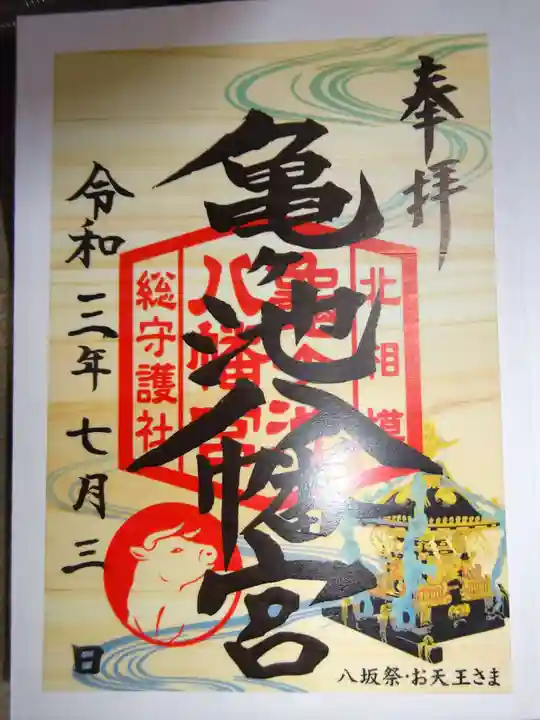 奉拝
亀ヶ池八幡宮
北相模
亀ヶ池
八幡宮
総守護社
令和三年七月三日
八坂祭・お天王さま